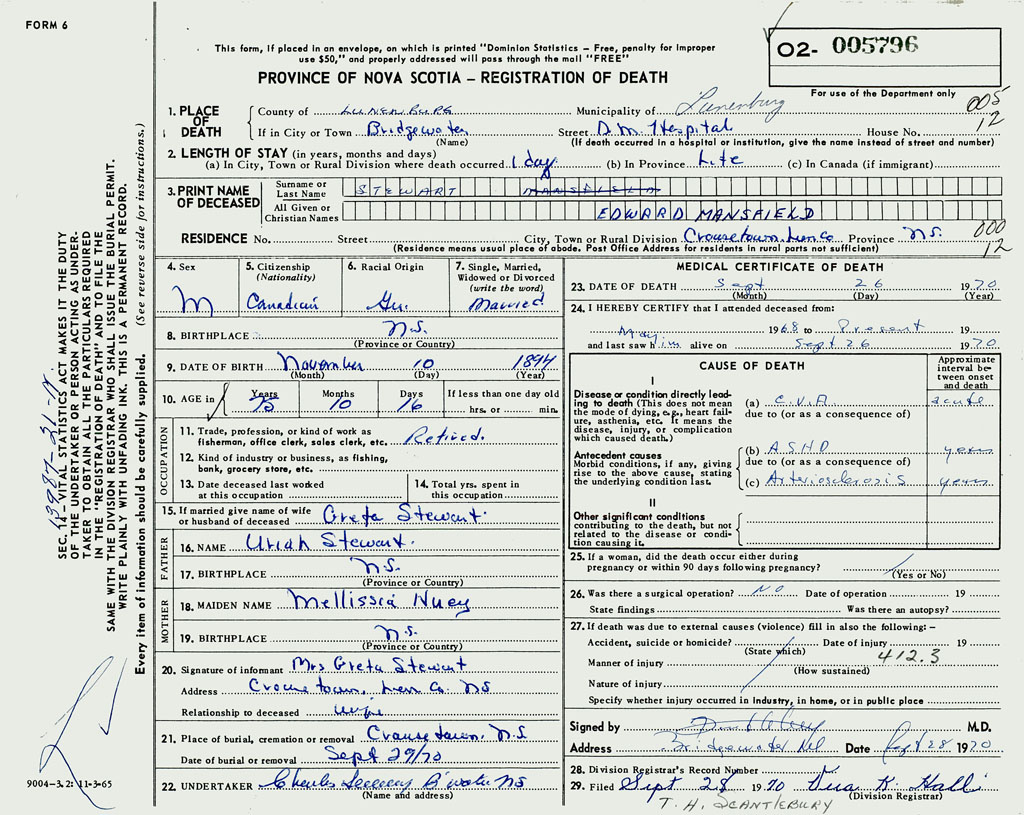 FORM 6
This form, if placed in an envelope, on which is printed "Dominion Statistics – Free, penalty for improper
use $50," and properly addressed will pass through the mail "FREE"
02- 005796
PROVINCE OF NOVA SCOTIA – REGISTRATION OF DEATH
For use of the Department only
005
12
1. PLACE OF DEATH
County of LUNENBURG Municipality of Lunenburg
If in City or Town Bridgewater Street D.M. Hospital House No.
(Name) (If death occurred in a hospital or institution, give the name instead of street and number)
2. LENGTH OF STAY (in years, months and days)
(a) In City, Town or Rural Division where death occurred 1 day (b) In Province Life (c) In Canada (if immigrant)
3. PRINT NAME OF DECEASED
Surname or Last Name STEWART MANSFIELD
All Given or Christian Names EDWARD MANSFIELD
RESIDENCE No. Street City, Town or Rural Division Crousetown, Lun Co Province N.S.
000
12
(Residence means usual place of abode. Post Office Address for residents in rural parts not sufficient)
4. Sex
M
5. Citizenship
(Nationality)
Canadian
6. Racial Origin
7. Single, Married,
Widowed or Divorced
(write the word)
Married
8. BIRTHPLACE N.S.
(Province or Country)
9. DATE OF BIRTH November 10 1894
(Month) (Day) (Year)
10. AGE in Years 75 Months 10 Days 16 If less than one day old
hrs. or min.
OCCUPATION
11. Trade, profession, or kind of work as
fisherman, office clerk, sales clerk, etc. Retired.
12. Kind of industry or business, as fishing,
bank, grocery store, etc.
13. Date deceased last worked
at this occupation
14. Total yrs. spent in
this occupation
15. If married give name of wife
or husband of deceased Greta Stewart.
FATHER
16. NAME Uriah Stewart.
17. BIRTHPLACE N.S.
(Province or Country)
MOTHER
18. MAIDEN NAME Mellissia
19. BIRTHPLACE N.S.
(Province or Country)
20. Signature of informant Mrs Greta Stewart
Address Crousetown, Lun Co. NS
Relationship to deceased wife
21. Place of burial, cremation or removal Crousetown. N.S
Date of burial or removal Sept 29/70
22. UNDERTAKER Charles B'water NS
(Name and address)
MEDICAL CERTIFICATE OF DEATH
23. DATE OF DEATH Sept 26 1970
(Month) (Day) (Year)
24. I HEREBY CERTIFY that I attended deceased from:
May 1968 to Present 19
and last saw him alive on Sept 26 1970
CAUSE OF DEATH
Approximate
interval be-
tween onset
and death
I
Disease or condition directly lead-
ing to death (This does not mean
the mode of dying, e.g., heart fail-
ure, asthenia, etc. It means the
disease, injury, or complication
which caused death.)
(a) C.V.A acute
due to (or as a consequence of)
Antecedent causes
Morbid conditions, if any, giving
rise to the above cause, stating
the underlying condition last.
(b) A.S.H.D years
due to (or as a consequence of)
(c) Arteriosclerosis years
II
Other significant conditions
contributing to the death, but not
related to the disease or condi-
tion causing it.
25. If a woman, did the death occur either during
pregnancy or within 90 days following pregnancy?
(Yes or No)
26. Was there a surgical operation? NO Date of operation 19
State findings Was there an autopsy?
27. If death was due to external causes (violence) fill in also the following: –
Accident, suicide or homicide? Date of injury 19
(State which)
412.3
Manner of injury
(How sustained)
Nature of injury
Specify whether injury occurred in Industry, in home, or in public place
Signed by M.D.
Address Bridgewater NS Date Sept 28 1970
28. Division Registrar's Record Number
29. Filed Sept 28 1970 K. Hall
(Division Registrar)
T. H. SCANTLEBURY
13987-31-N.
SEC. 14 – VITAL STATISTICS ACT MAKES IT THE DUTY
OF THE UNDERTAKER OR PERSON ACTING AS UNDER-
TAKER TO OBTAIN ALL THE PARTICULARS REQUIRED
IN THE "REGISTRATION OF DEATH" AND TO FILE THE
SAME WITH THE DIVISION REGISTRAR WHO SHALL ISSUE THE BURIAL PERMIT.
WRITE PLAINLY WITH UNFADING INK. THIS IS A PERMANENT RECORD.
Every item of information should be carefully supplied. (See reverse side for instructions.)
9004-3.2: 11-3-65